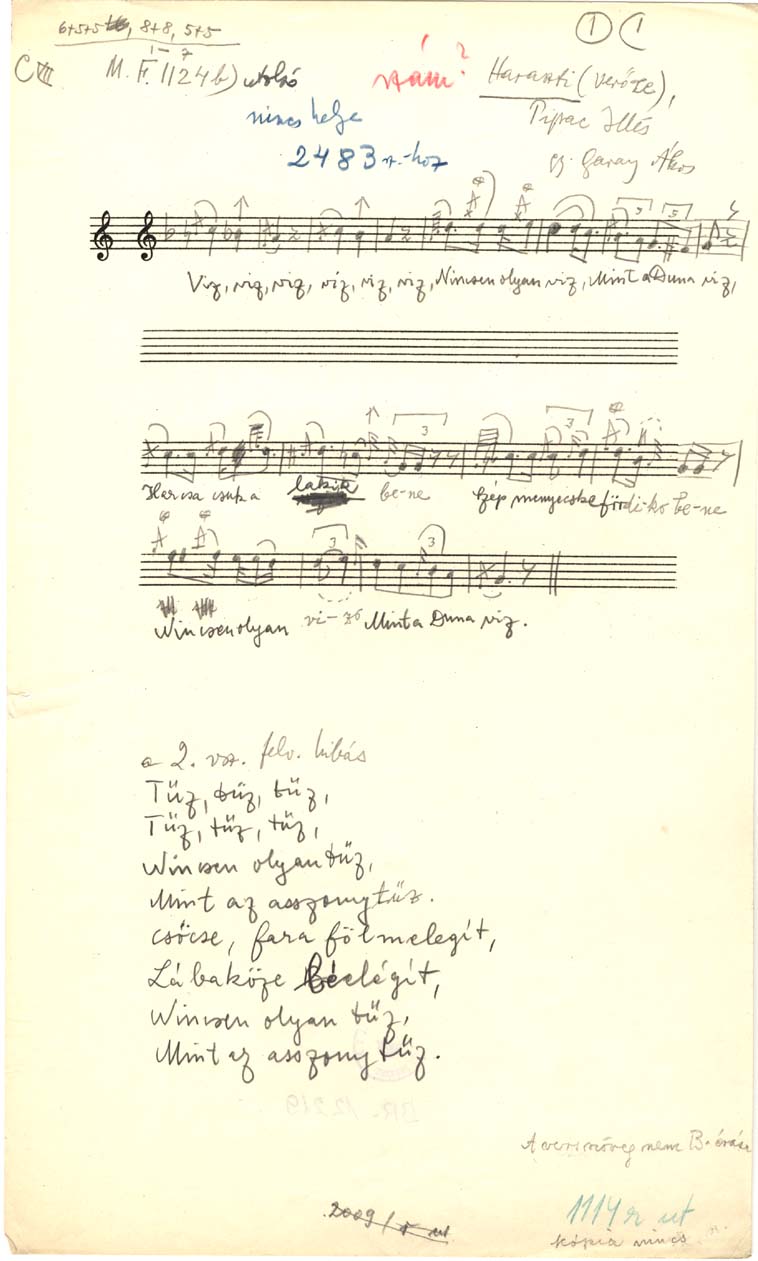 6+5+5, 8+8, 5+5
1 1
1-7
C VII M. F. 1124b) utolsó szám? Haraszti (Verőce),
nincs helye Pipac Illés
2483 sz.-hoz gy. Garay Ákos
Víz, víz, víz, víz, víz, víz, Nincsen olyan víz, Mint a Duna víz,
Harcsa csuka lakik be-ne Szép menyecske fürdik be-ne
Nincsen olyan ví-z Mint a Duna víz.
a 2. vsz. felv. hibás
Tűz, tűz, tűz,
Tűz, tűz, tűz,
Nincsen olyan tűz,
Mint az asszonytűz.
Csöcse, fara fölmelegít,
Lábaköze béelégít,
Nincsen olyan tűz,
Mint az asszonytűz.
BR. 12219
A versszöveg nem B. írása
2009/
1114 ut
kópia nincs